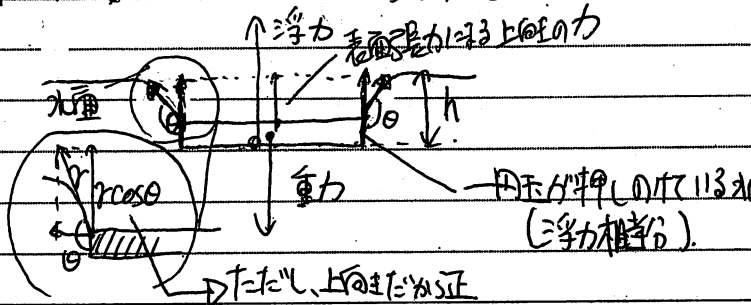 浮力
表面張力による上向きの力
水面
θ
θ
h
重力
γ
γcosθ
θ
一円玉が押しのけている水
(浮力相当分).
ただし、上向きだから正